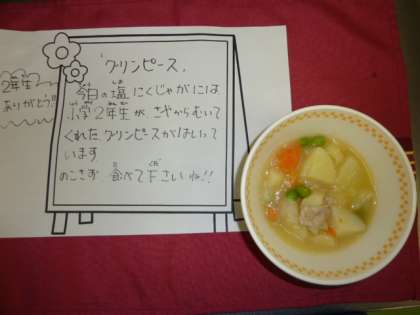 グリンピース
今日の塩にくじゃがには
小学2年生が、さやからむいて
くれたグリンピースがはいって
います
のこさず、食べて下さいね!!
2年生
ありがとう!!